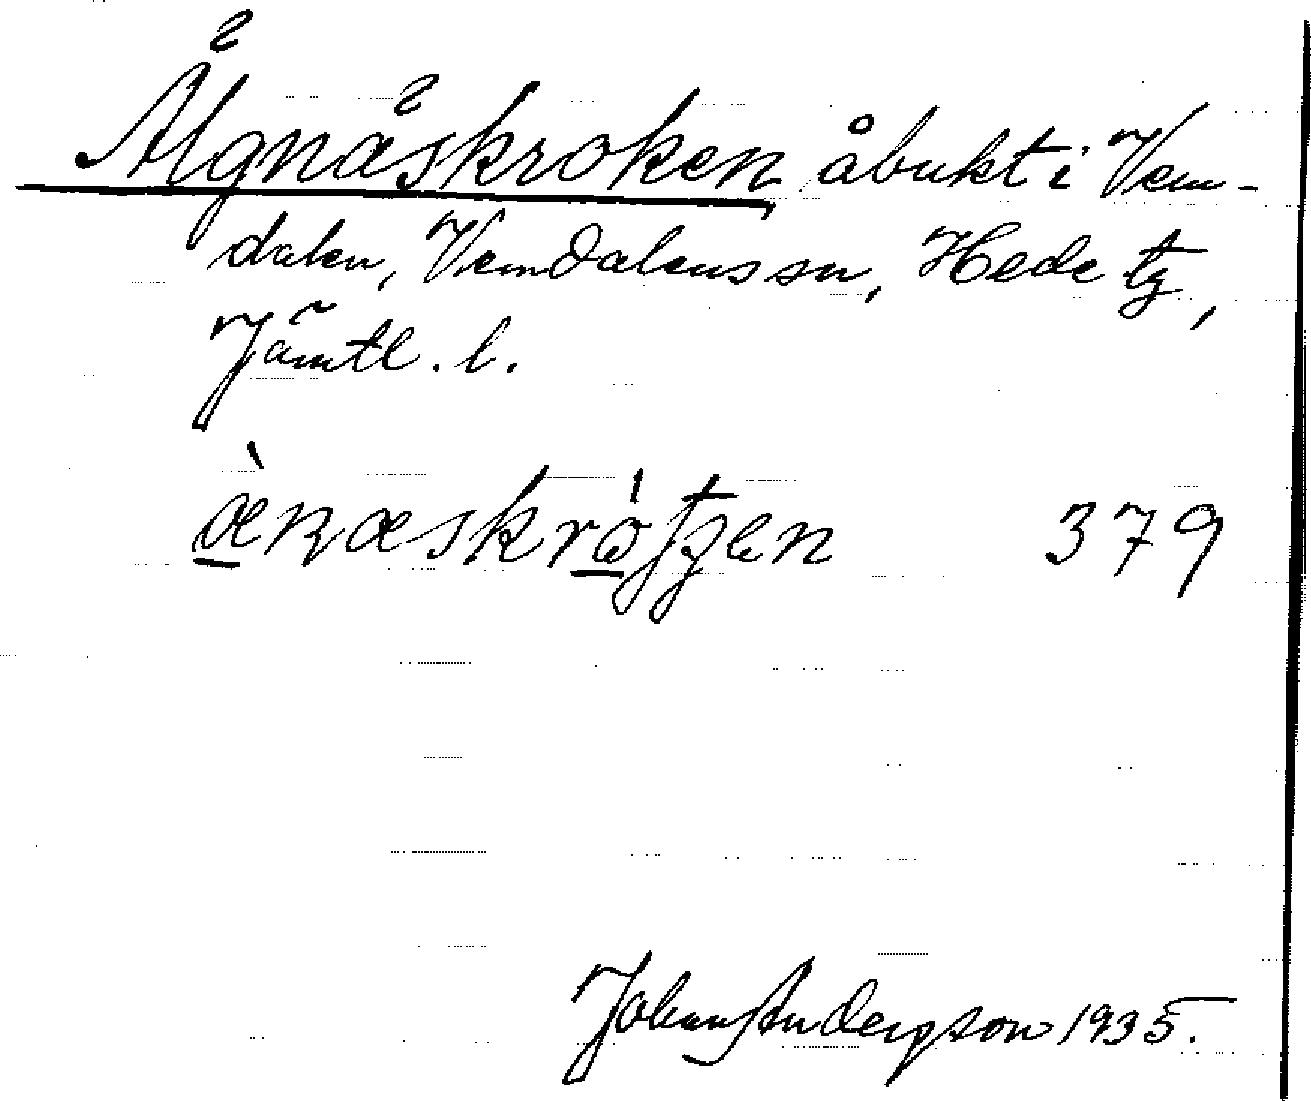 Älgnäskroken åbukt i Vem-
dalen, Vemdalens sn, Hede tg,
Jämtl. l.
379
Johan Andersson 1935.